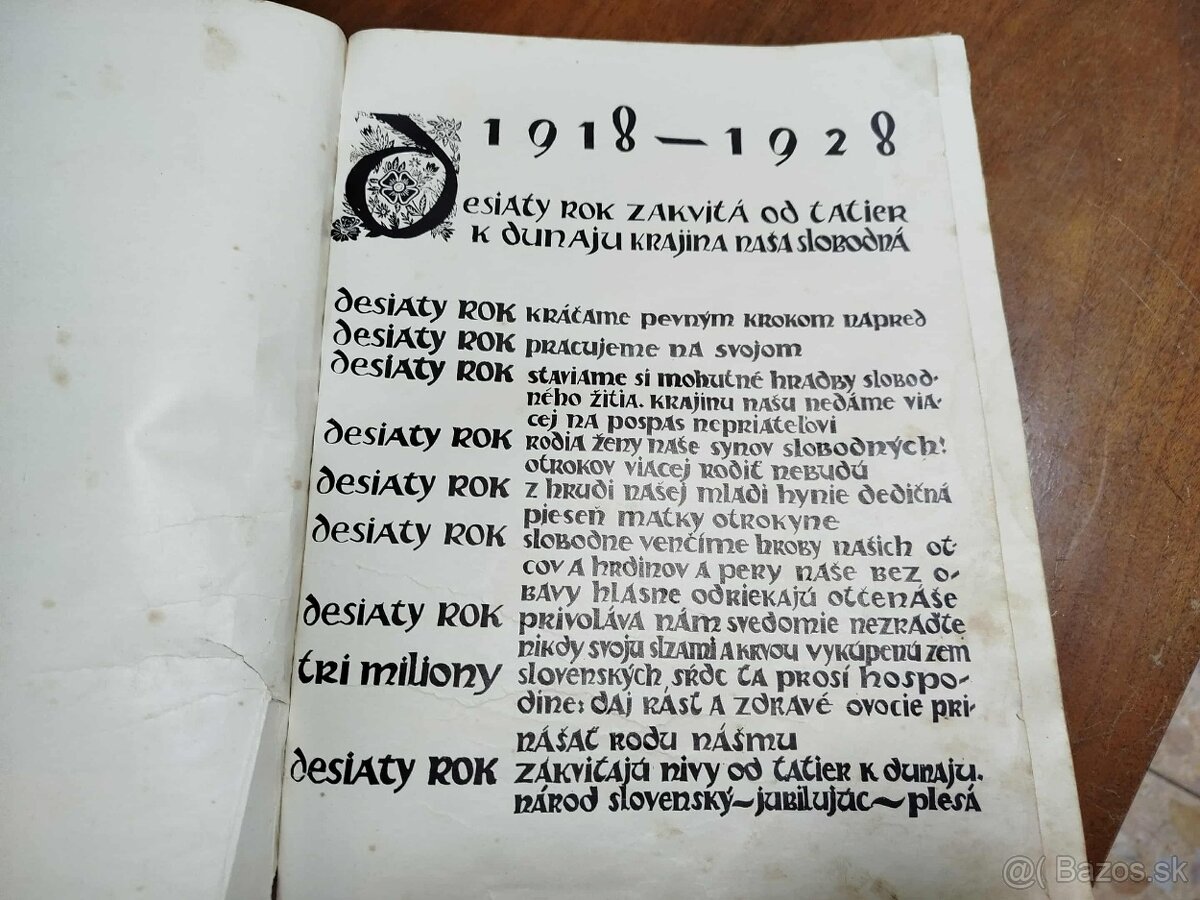 1918 — 1928
Desiaty rok zakvitá od Tatier
k Dunaju krajina naša slobodná
desiaty rok kráčame pevným krokom napred
desiaty rok pracujeme na svojom
desiaty rok staviame si mohutné hradby slobod-
ného žitia. krajinu našu nedáme via-
cej na pospas nepriateľovi
desiaty rok rodia ženy naše synov slobodných!
otrokov viacej rodiť nebudú
desiaty rok z hrudi našej mladi hynie dedičná
pieseň matky otrokyne
desiaty rok slobodne venčíme hroby našich ot-
cov a hrdinov a pery naše bez o-
bávy hlasne odriekajú otčenáše
desiaty rok privoláva nám svedomie nezraďte
nikdy svoju slzami a krvou vykúpenú zem
tri miliony slovenských sŕdc ťa prosí hospo-
dine: daj rásť a zdravé ovocie pri-
nášať rodu nášmu
desiaty rok zakvitajú nivy od tatier k dunaju.
národ slovenský~jubilujúc~plesá
@( Bazos.sk